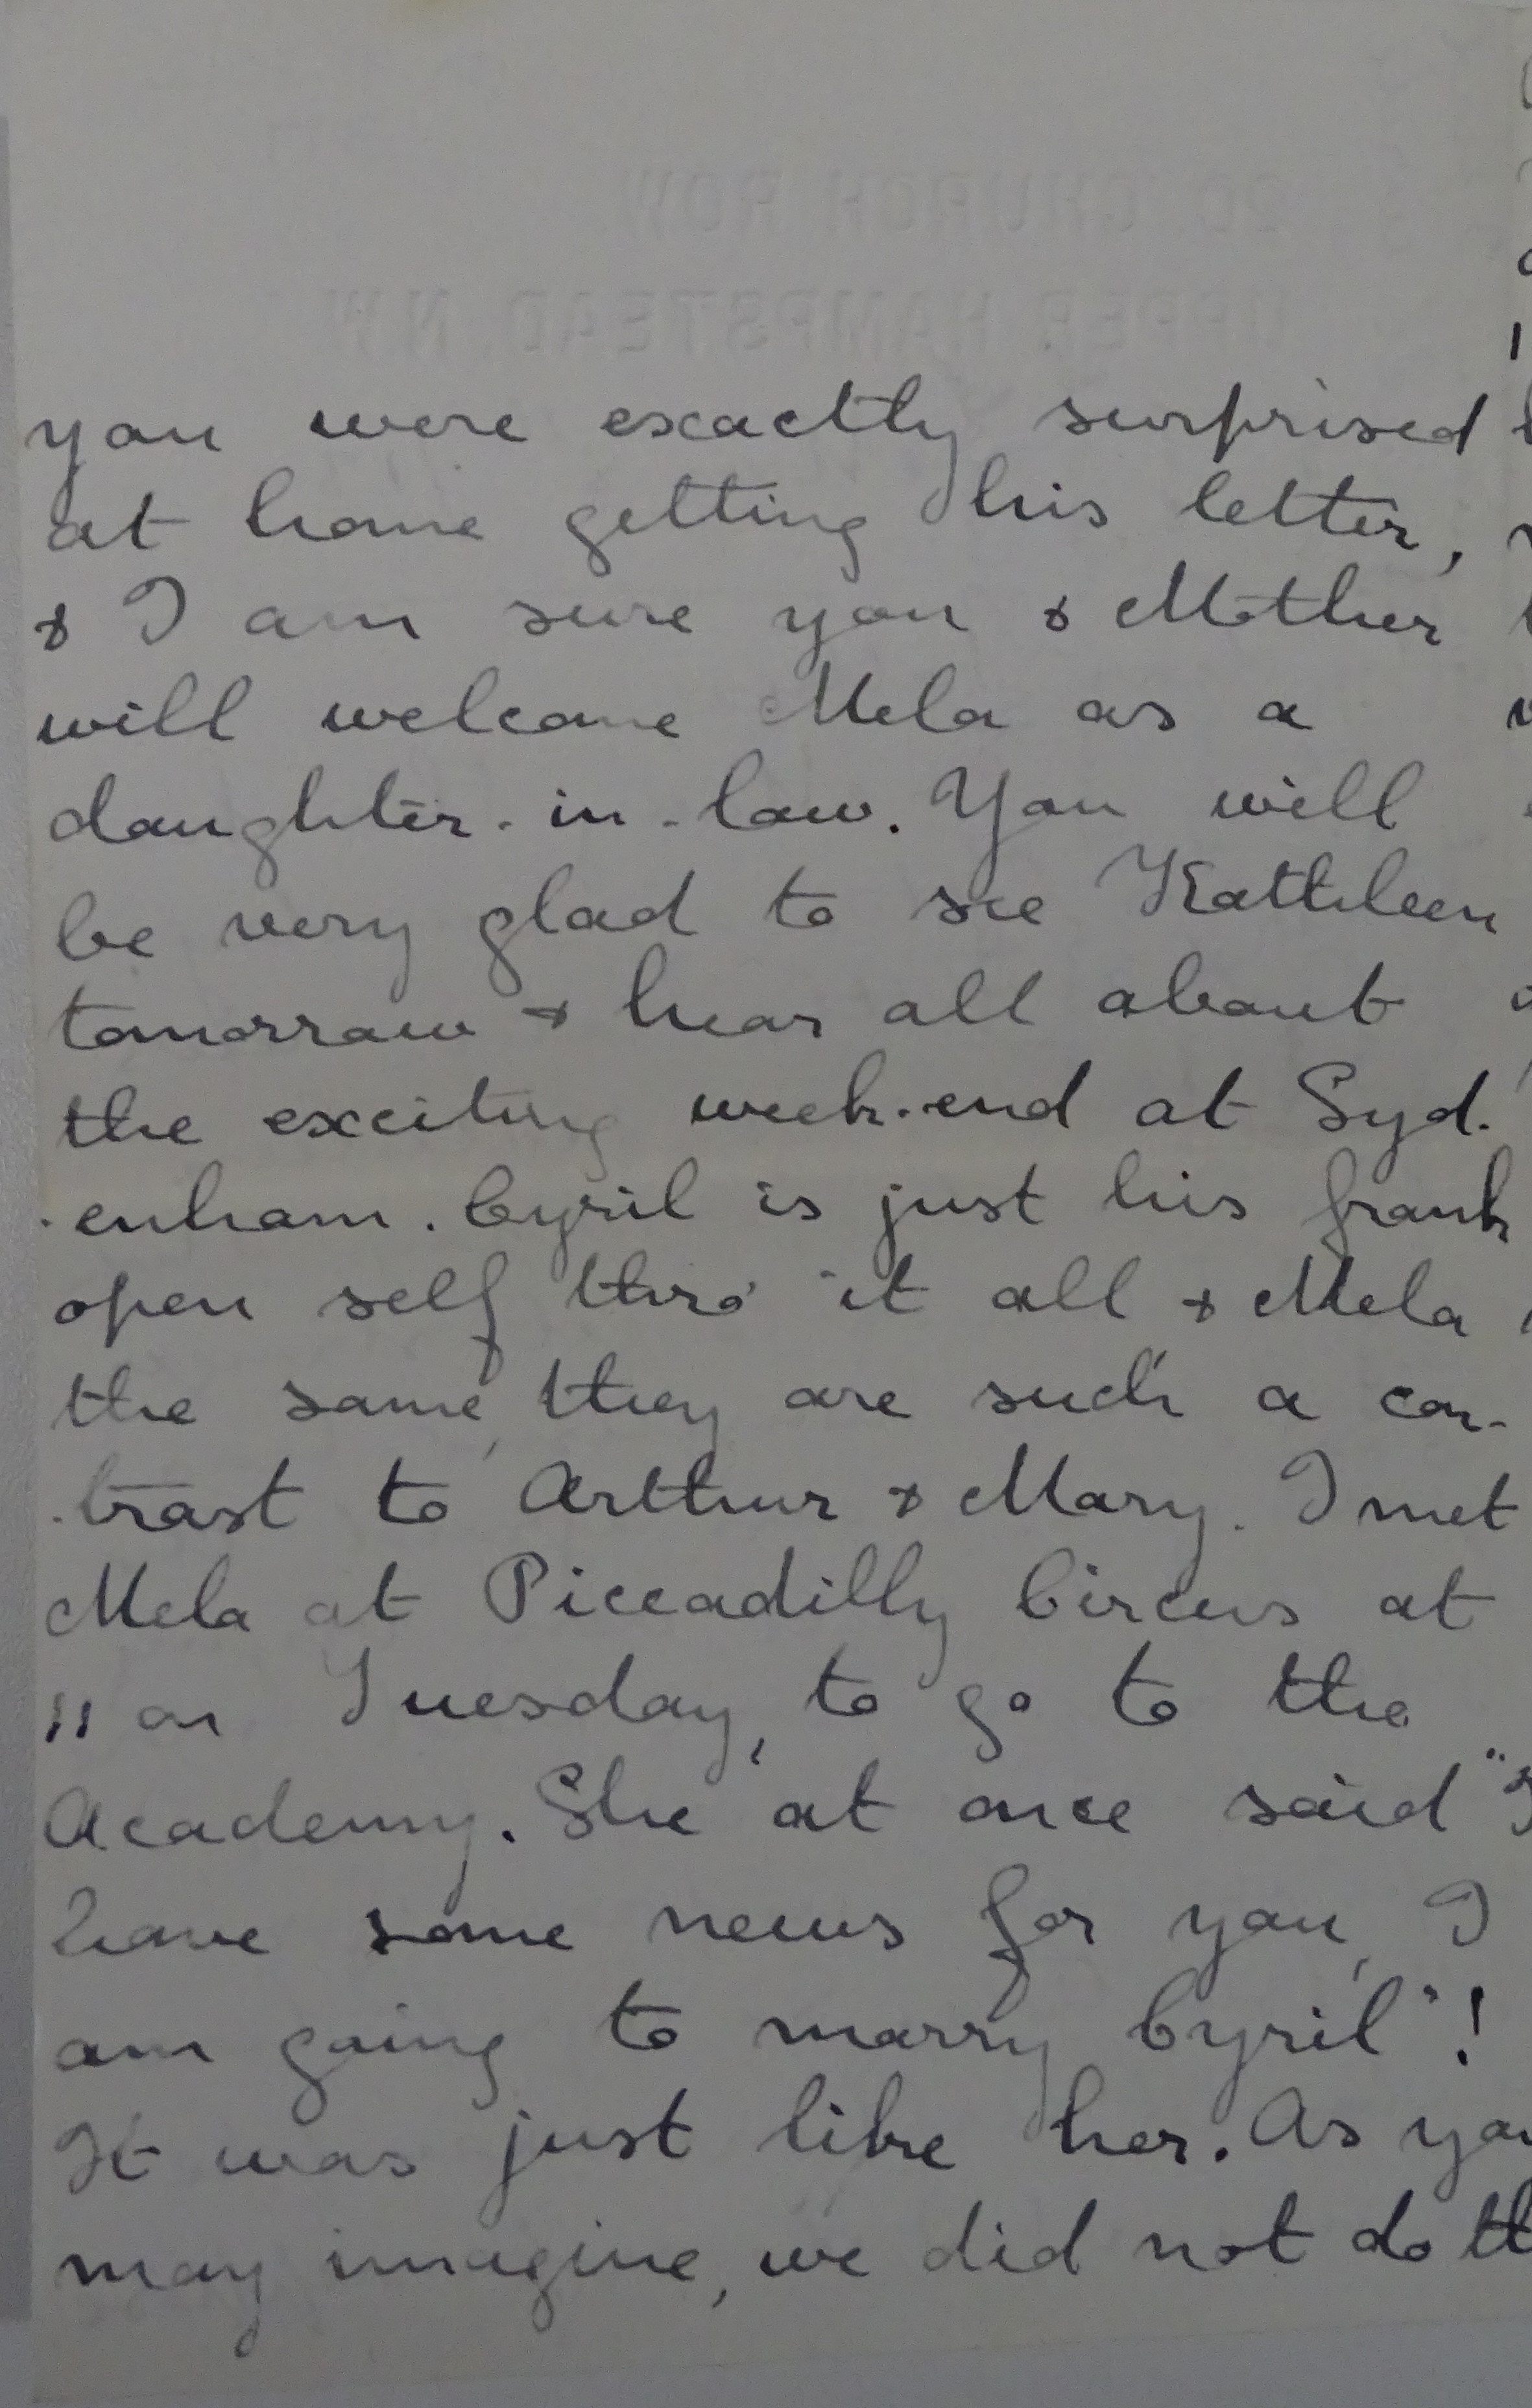 20, CHURCH ROW
UPPER HAMPSTEAD, N.W.
you were exactly surprised
at home getting his letter,
& I am sure you & Mother
will welcome Mela as a
daughter-in-law. You will
be very glad to see Kathleen
tomorrow & hear all about
the exciting week-end at Syd-
-enham. Cyril is just his frank
open self thro' it all & Mela
the same, they are such a con-
-trast to Arthur & Mary. I met
Mela at Piccadilly Circus at
11 on Tuesday, to go to the
Academy. She at once said "I
have some news for you, I
am going to marry Cyril"!
It was just like her. As you
may imagine, we did not do